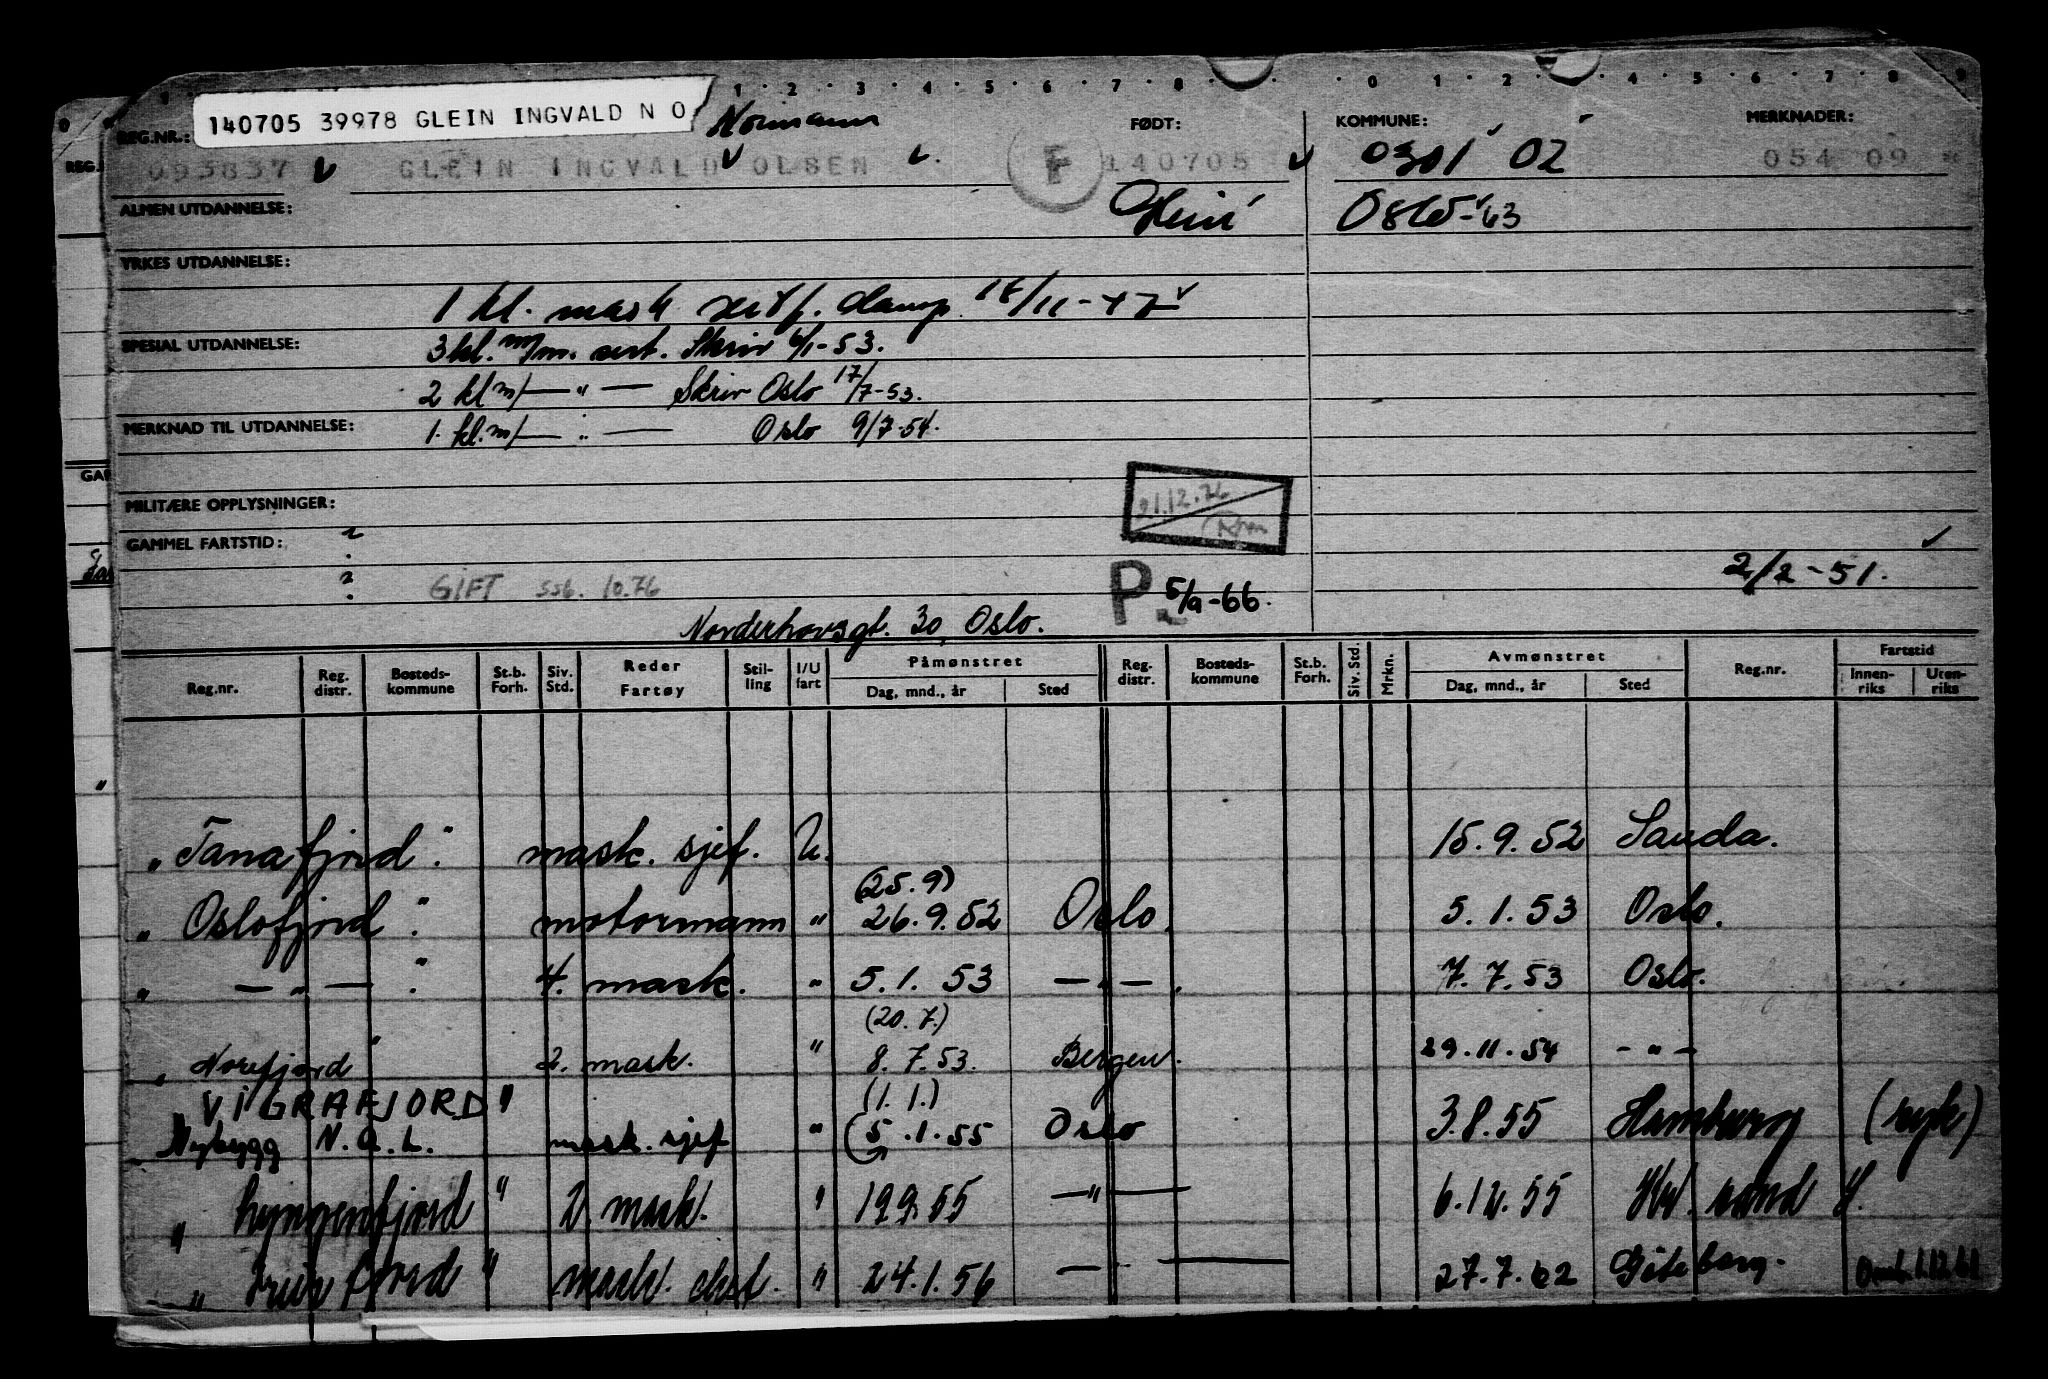 140705 39978 GLEIN INGVALD N O
Normann
REG.NR.: FØDT: KOMMUNE: MERKNADER:
REG. 093837 GLEIN INGVALD OLSEN F 140705 0301 02 054 09
ALMEN UTDANNELSE: Oslo-63
YRKES UTDANNELSE:
1 kl. mask sert f. damp
SPESIAL UTDANNELSE: 3 kl. m/m. sert. Skriv 6/1-53.
2 kl m/ — " — Skriv Oslo 17/7-53.
MERKNAD TIL UTDANNELSE: 1. kl. m/ — " — Oslo 9/7-54.
21.12.76
MILITÆRE OPPLYSNINGER:
GAMMEL FARTSTID:
2/2-51.
GIFT ssb. 10.76 P. 5/9-66.
Norderhovsgt. 30, Oslo.
Reg.nr. Reg. distr. Bosteds-kommune St.b. Forh. Siv. Std. Reder Fartøy Stil-ling I/U fart Påmønstret Dag, mnd., år Sted Reg. distr. Bosteds-kommune St.b. Forh. Siv. Std. Mrkn. Avmønstret Dag, mnd., år Sted Reg.nr. Fartstid Innen-riks Uten-riks
"Tanafjord". mask. sjef. U. 15.9.52 Sauda.
(25.9)
"Oslofjord". motormann " 26.9.52 Oslo. 5.1.53 Oslo.
" — " — ". 4. mask. " 5.1.53 — " —. 7.7.53 Oslo.
(20.7.)
"Norefjord" 2. mask. " 8.7.53. Bergen. 29.11.54 - " -
"VIGRAFJORD" (1.1.)
Nybygg N.A.L. mask. sjef " (5.1.55 Oslo 3.8.55 Hamburg (syk)
"Lyngenfjord" 2. mask. " 19.9.55 — " — 6.12.55
24.1.56 — 27.7.62 Göteborg.